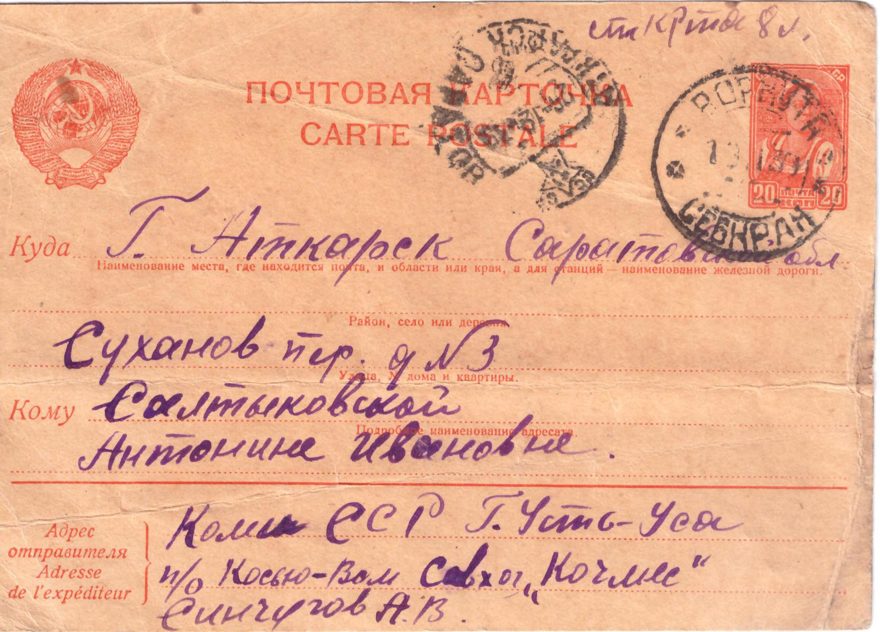 ст крта 8 л.
ПОЧТОВАЯ КАРТОЧКА
CARTE POSTALE
20 ПОЧТА 20
ВОРКУТА
СЕВКРАЯ
Куда Г. Аткарск Саратовской обл.
Наименование места, где находится почта, и области или края, а для станций — наименование железной дороги.
Район, село или деревня.
Суханов пер. д №3
Улица, № дома и квартиры.
Кому Салтыковской
Подробное наименование адресата.
Антонине Ивановне.
Адрес отправителя
Adresse de l'expéditeur
Коми ССР Г. Усть-Уса
п/о Косью-Вом Совхоз „Кочмес"
Синчугов А.В.